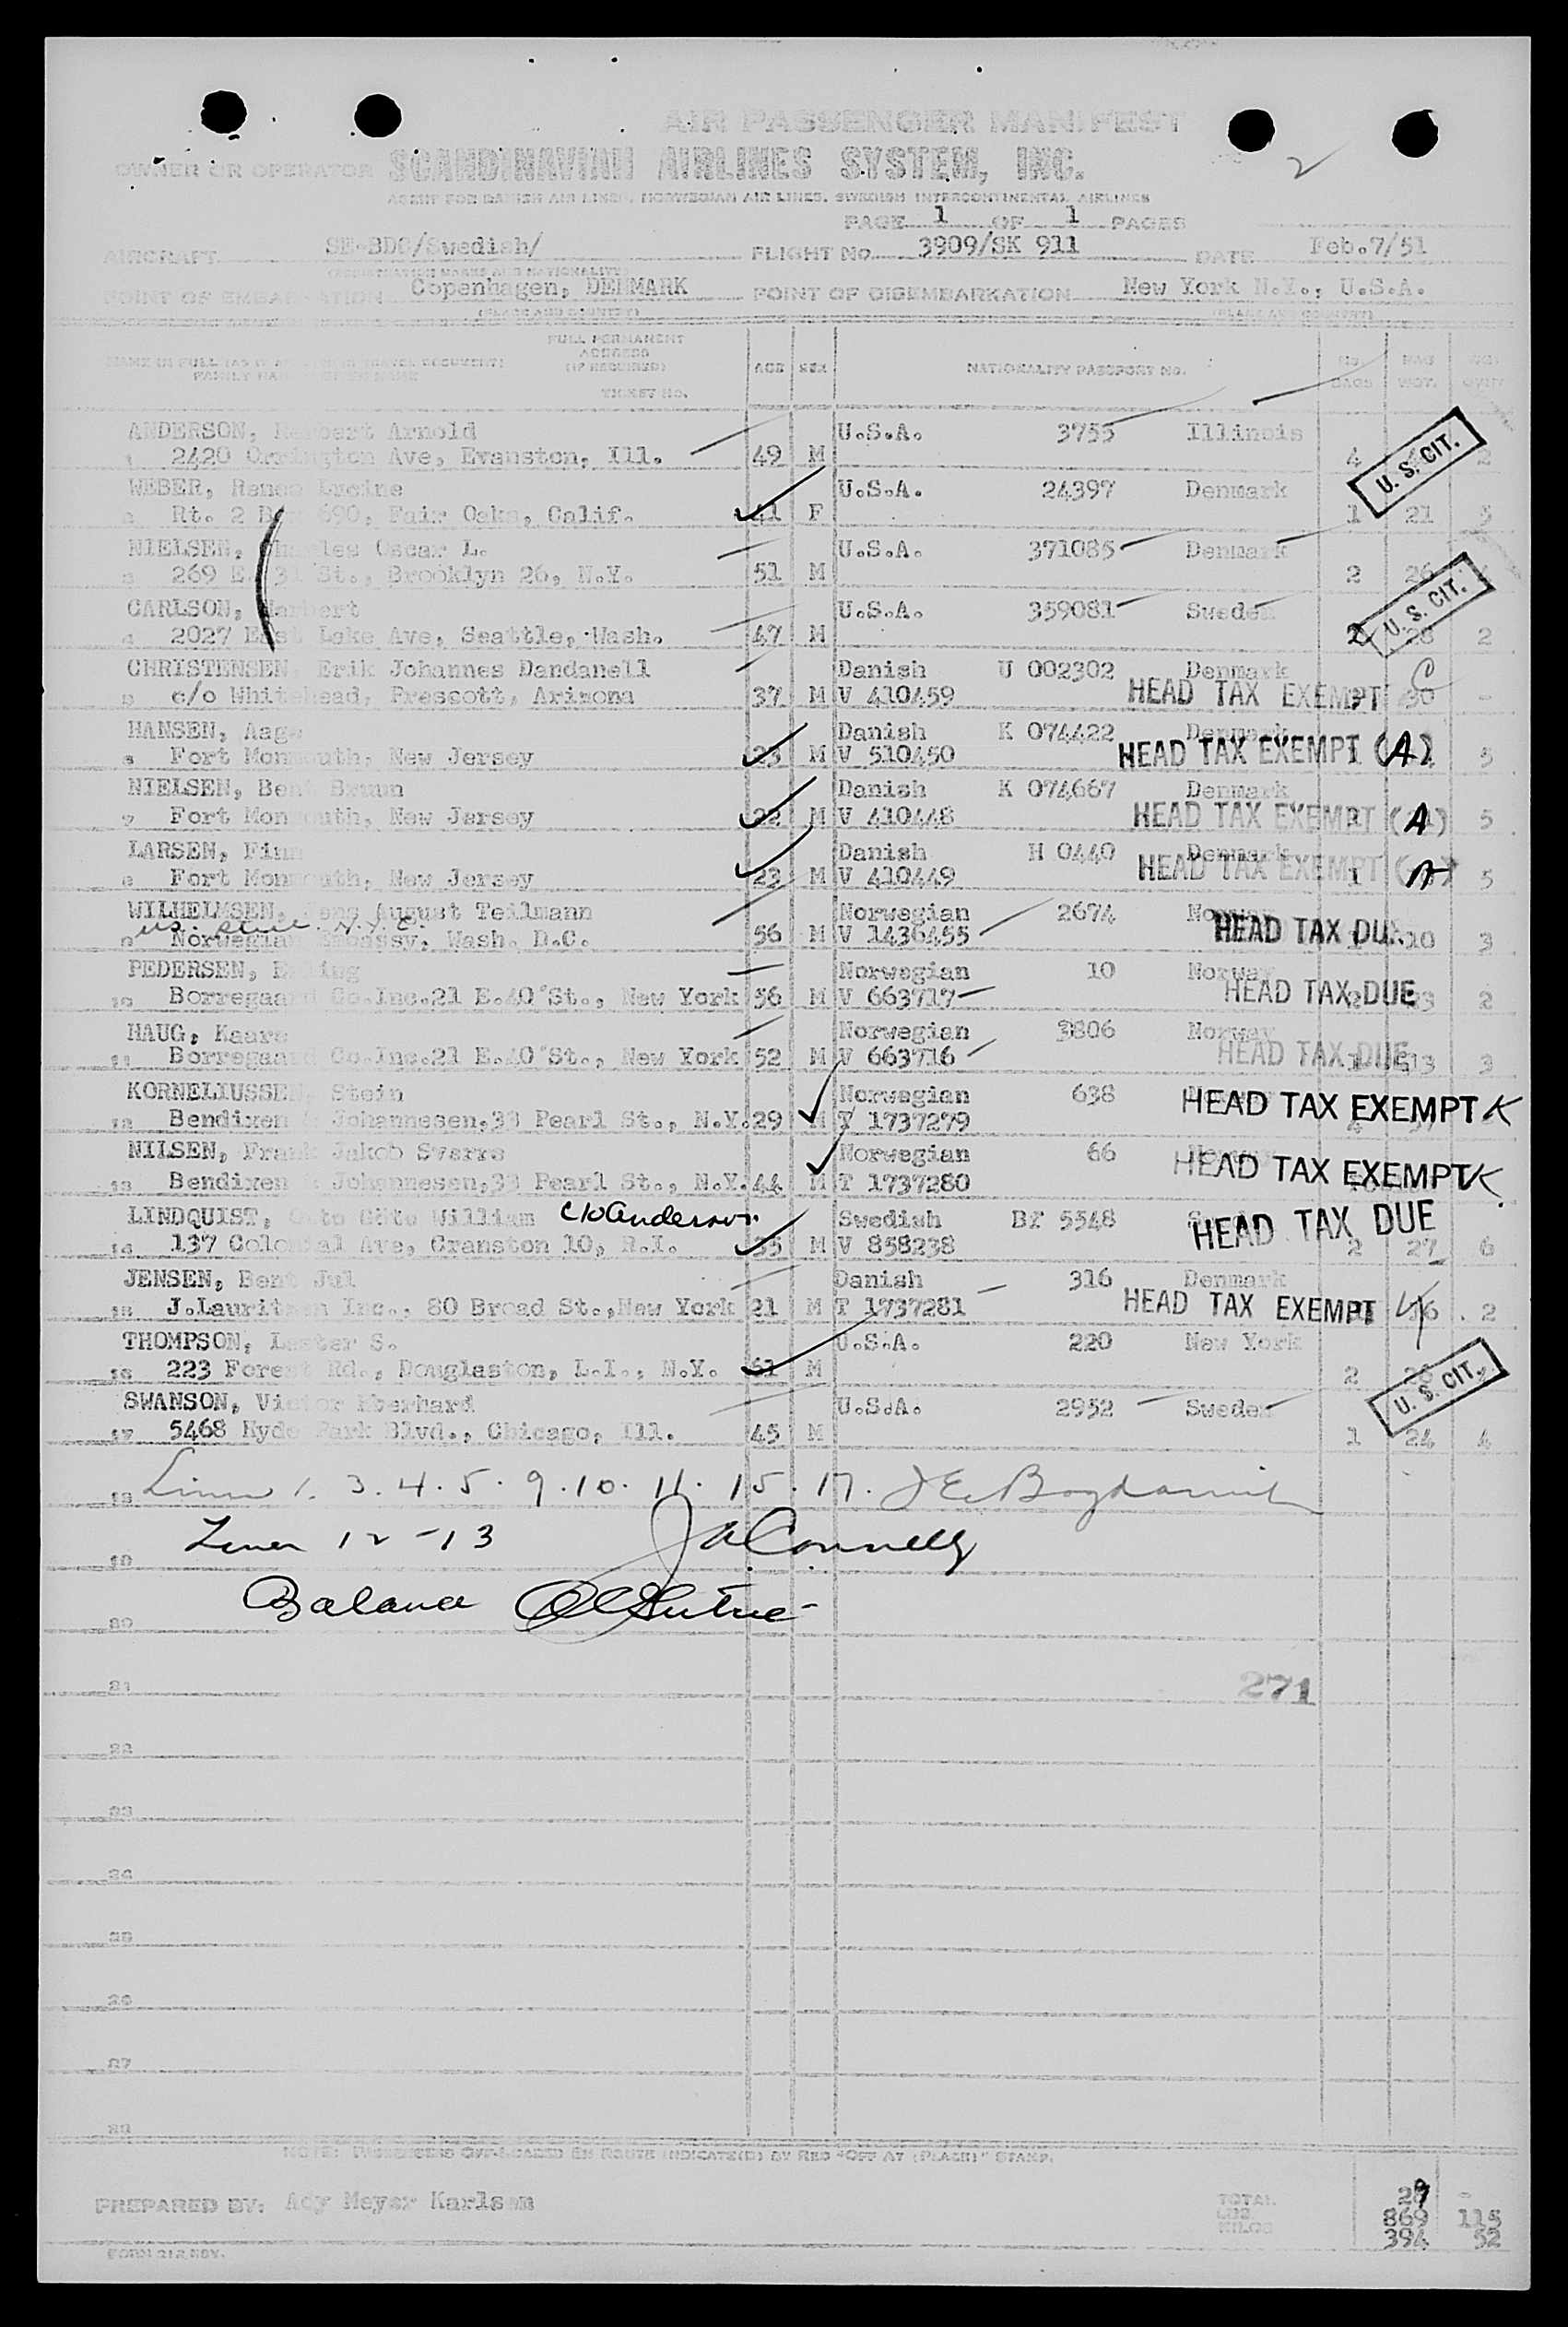 AIR PASSENGER MANIFEST
2
OWNER OR OPERATOR SCANDINAVIAN AIRLINES SYSTEM, INC.
AGENT FOR DANISH AIR LINES, NORWEGIAN AIR LINES, SWEDISH INTERCONTINENTAL AIRLINES
PAGE 1 OF 1 PAGES
AIRCRAFT SE-BDC/Swedish/ FLIGHT No. 3909/SK 911 DATE Feb.7/51
(REGISTRATION MARKS AND NATIONALITY)
POINT OF EMBARKATION Copenhagen, DENMARK POINT OF DISEMBARKATION New York N.Y., U.S.A.
(PLACE AND COUNTRY) (PLACE AND COUNTRY)
FULL PERMANENT ADDRESS (IF REQUIRED) TICKET NO. AGE SEX NATIONALITY PASSPORT NO. NO. BAGS BAG WGT.
ANDERSON, Arnold U.S.A. 3755 Illinois
1 2420 Ave, Evanston, Ill. 49 M 4 U. S. CIT. 2
WEBER, U.S.A. 24397 Denmark
Rt. 2 690, Fair Oaks, Calif. 41 F 1 21 5
NIELSEN, Oscar L. U.S.A. 371085 Denmark
3 269 E. 31 St., Brooklyn 26, N.Y. 51 M 2 26
CARLSON, U.S.A. 359081 Sweden
4 2027 East Lake Ave, Seattle, Wash. 47 M 2 28 U. S. CIT. 2
CHRISTENSEN, Erik Johannes Dandanell Danish U 002302 Denmark C
5 c/o Whitehead, Prescott, Arizona 37 M V 410459 HEAD TAX EXEMPT 30 -
HANSEN, Aage Danish K 074422 Denmark
6 Fort Monmouth, New Jersey 23 M V 510450 HEAD TAX EXEMPT 1 (A) 5
NIELSEN, Bent Bruun Danish K 074667 Denmark
7 Fort Monmouth, New Jersey 22 M V 410448 HEAD TAX EXEMPT (A) 5
LARSEN, Finn Danish H 0440 Denmark
8 Fort Monmouth, New Jersey 23 M V 410449 HEAD TAX EXEMPT 1 A 5
WILHELMSEN, Jens August Teilmann Norwegian 2674 Norway
9 Norwegian Embassy, Wash. D.C. 56 M V 1436455 HEAD TAX DUE 10 3
PEDERSEN, Norwegian 10 Norway
10 Borregaard Co.Inc.21 E.40 St., New York 56 M V 663717 HEAD TAX DUE 2 2
HAUG, Kaare Norwegian 3806 Norway
11 Borregaard Co.Inc.21 E.40 St., New York 52 M V 663716 HEAD TAX DUE 1 3
KORNELIUSSEN, Stein Norwegian 638 HEAD TAX EXEMPT K
12 Bendixen & Johannesen,33 Pearl St., N.Y. 29 M T 1737279
NILSEN, Frank Jakob Sverre Norwegian 66 HEAD TAX EXEMPT K
13 Bendixen & Johannesen,33 Pearl St., N.Y. 44 M T 1737280
LINDQUIST, Göte William c/o Anderson Swedish BF 5548 HEAD TAX DUE
14 137 Colonial Ave, Cranston 10, R.I. 35 M V 858238 2 27 6
JENSEN, Bent Jul Danish 316 Denmark
15 J.Lauritzen Inc., 80 Broad St.,New York 21 M T 1737281 HEAD TAX EXEMPT 2
THOMPSON, Lester S. U.S.A. 220 New York
16 223 Forest Rd., Douglaston, L.I., N.Y. 61 M 2
SWANSON, Victor Eberhard U.S.A. 2952 Sweden U. S. CIT.
17 5468 Hyde Park Blvd., Chicago, Ill. 45 M 1 24 4
18 Lines 1. 3. 4. 5. 9. 10. 11. 15. 17.
19 Lines 12-13 JA Connelly
20 Balance
21 271
22
23
24
25
26
27
28
NOTE: PASSENGERS OFF-LOADED EN ROUTE INDICATE(D) BY RED "OFF AT (PLACE)" STAMP.
PREPARED BY: Acy Meyer Karlsen TOTAL 29 -
LBS. 869 115
KILOS 394 52
FORM 212 NBY.